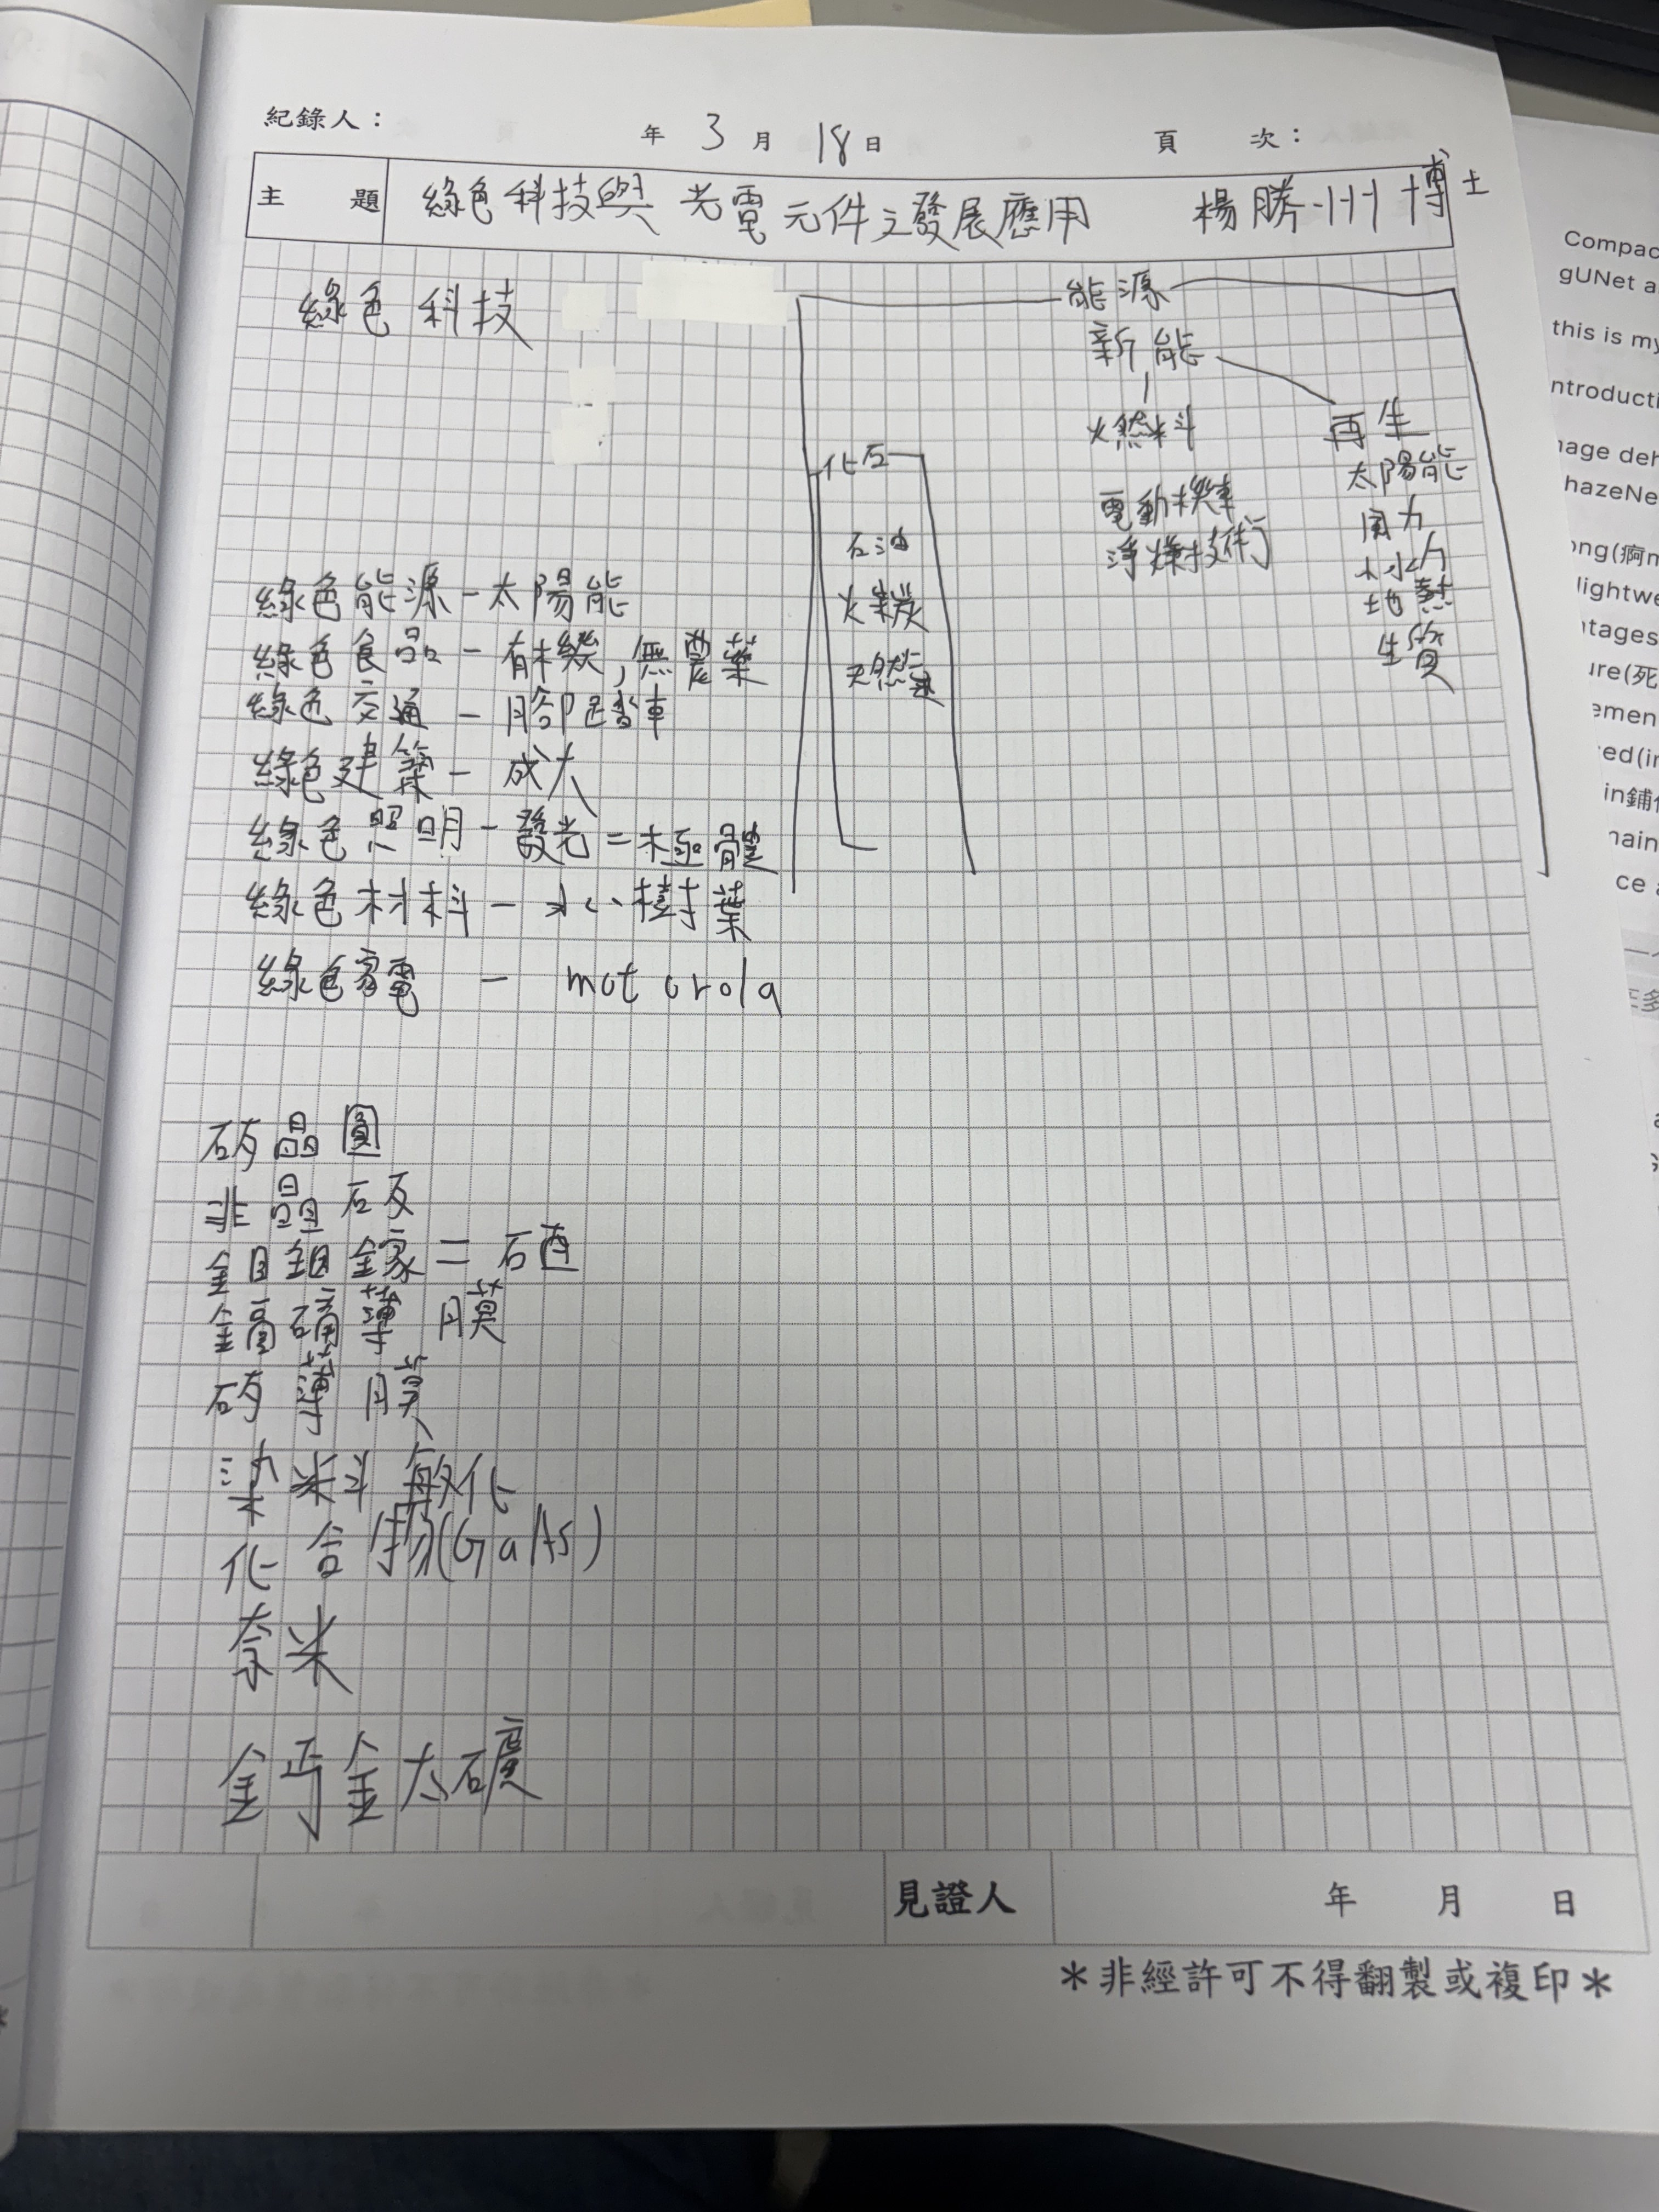 紀錄人：　年 3 月 18 日　頁　次：
主　題　綠色科技與光電元件之發展應用　楊勝州博士
綠色科技
能源
新能
燃料
電動機車
淨煤技術
再生
太陽能
風力
水力
地熱
生質
化石
石油
煤炭
天然氣
綠色能源－太陽能
綠色食品－有機，無農藥
綠色交通－腳踏車
綠色建築－成大
綠色照明－發光二極體
綠色材料－水 樹葉
綠色家電－motorola
矽晶圓
非晶矽
銅銦鎵二硒
鎘碲薄膜
矽薄膜
染料敏化
化合物(GaAs)
奈米
鈣鈦礦
見證人　年　月　日
＊非經許可不得翻製或複印＊
Compac
gUNet a
this is my
ntroducti
nage deh
hazeNe
ong(啊
lightwe
tages
ure(死
emen
ed(in
in鋪
main
ce a